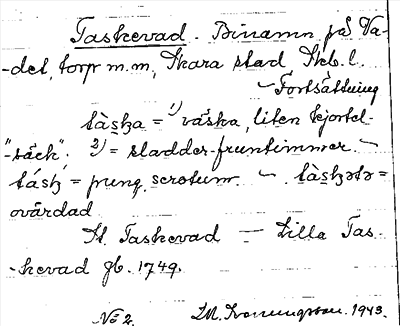 Taskevad. Binamn på Va-
-det, torp m.m, Skara stad Skb. l.
~ Fortsättning
tàsʒa = 1) väska, liten kjortel-
"-säck". 2) = sladder-fruntimmer. ~
tásʒ = pung, scrotum. ~ tàsʒətə =
ovårdad
St. Taskevad — Lilla Tas-
-kevad gb. 1749.
No 2. 1943.